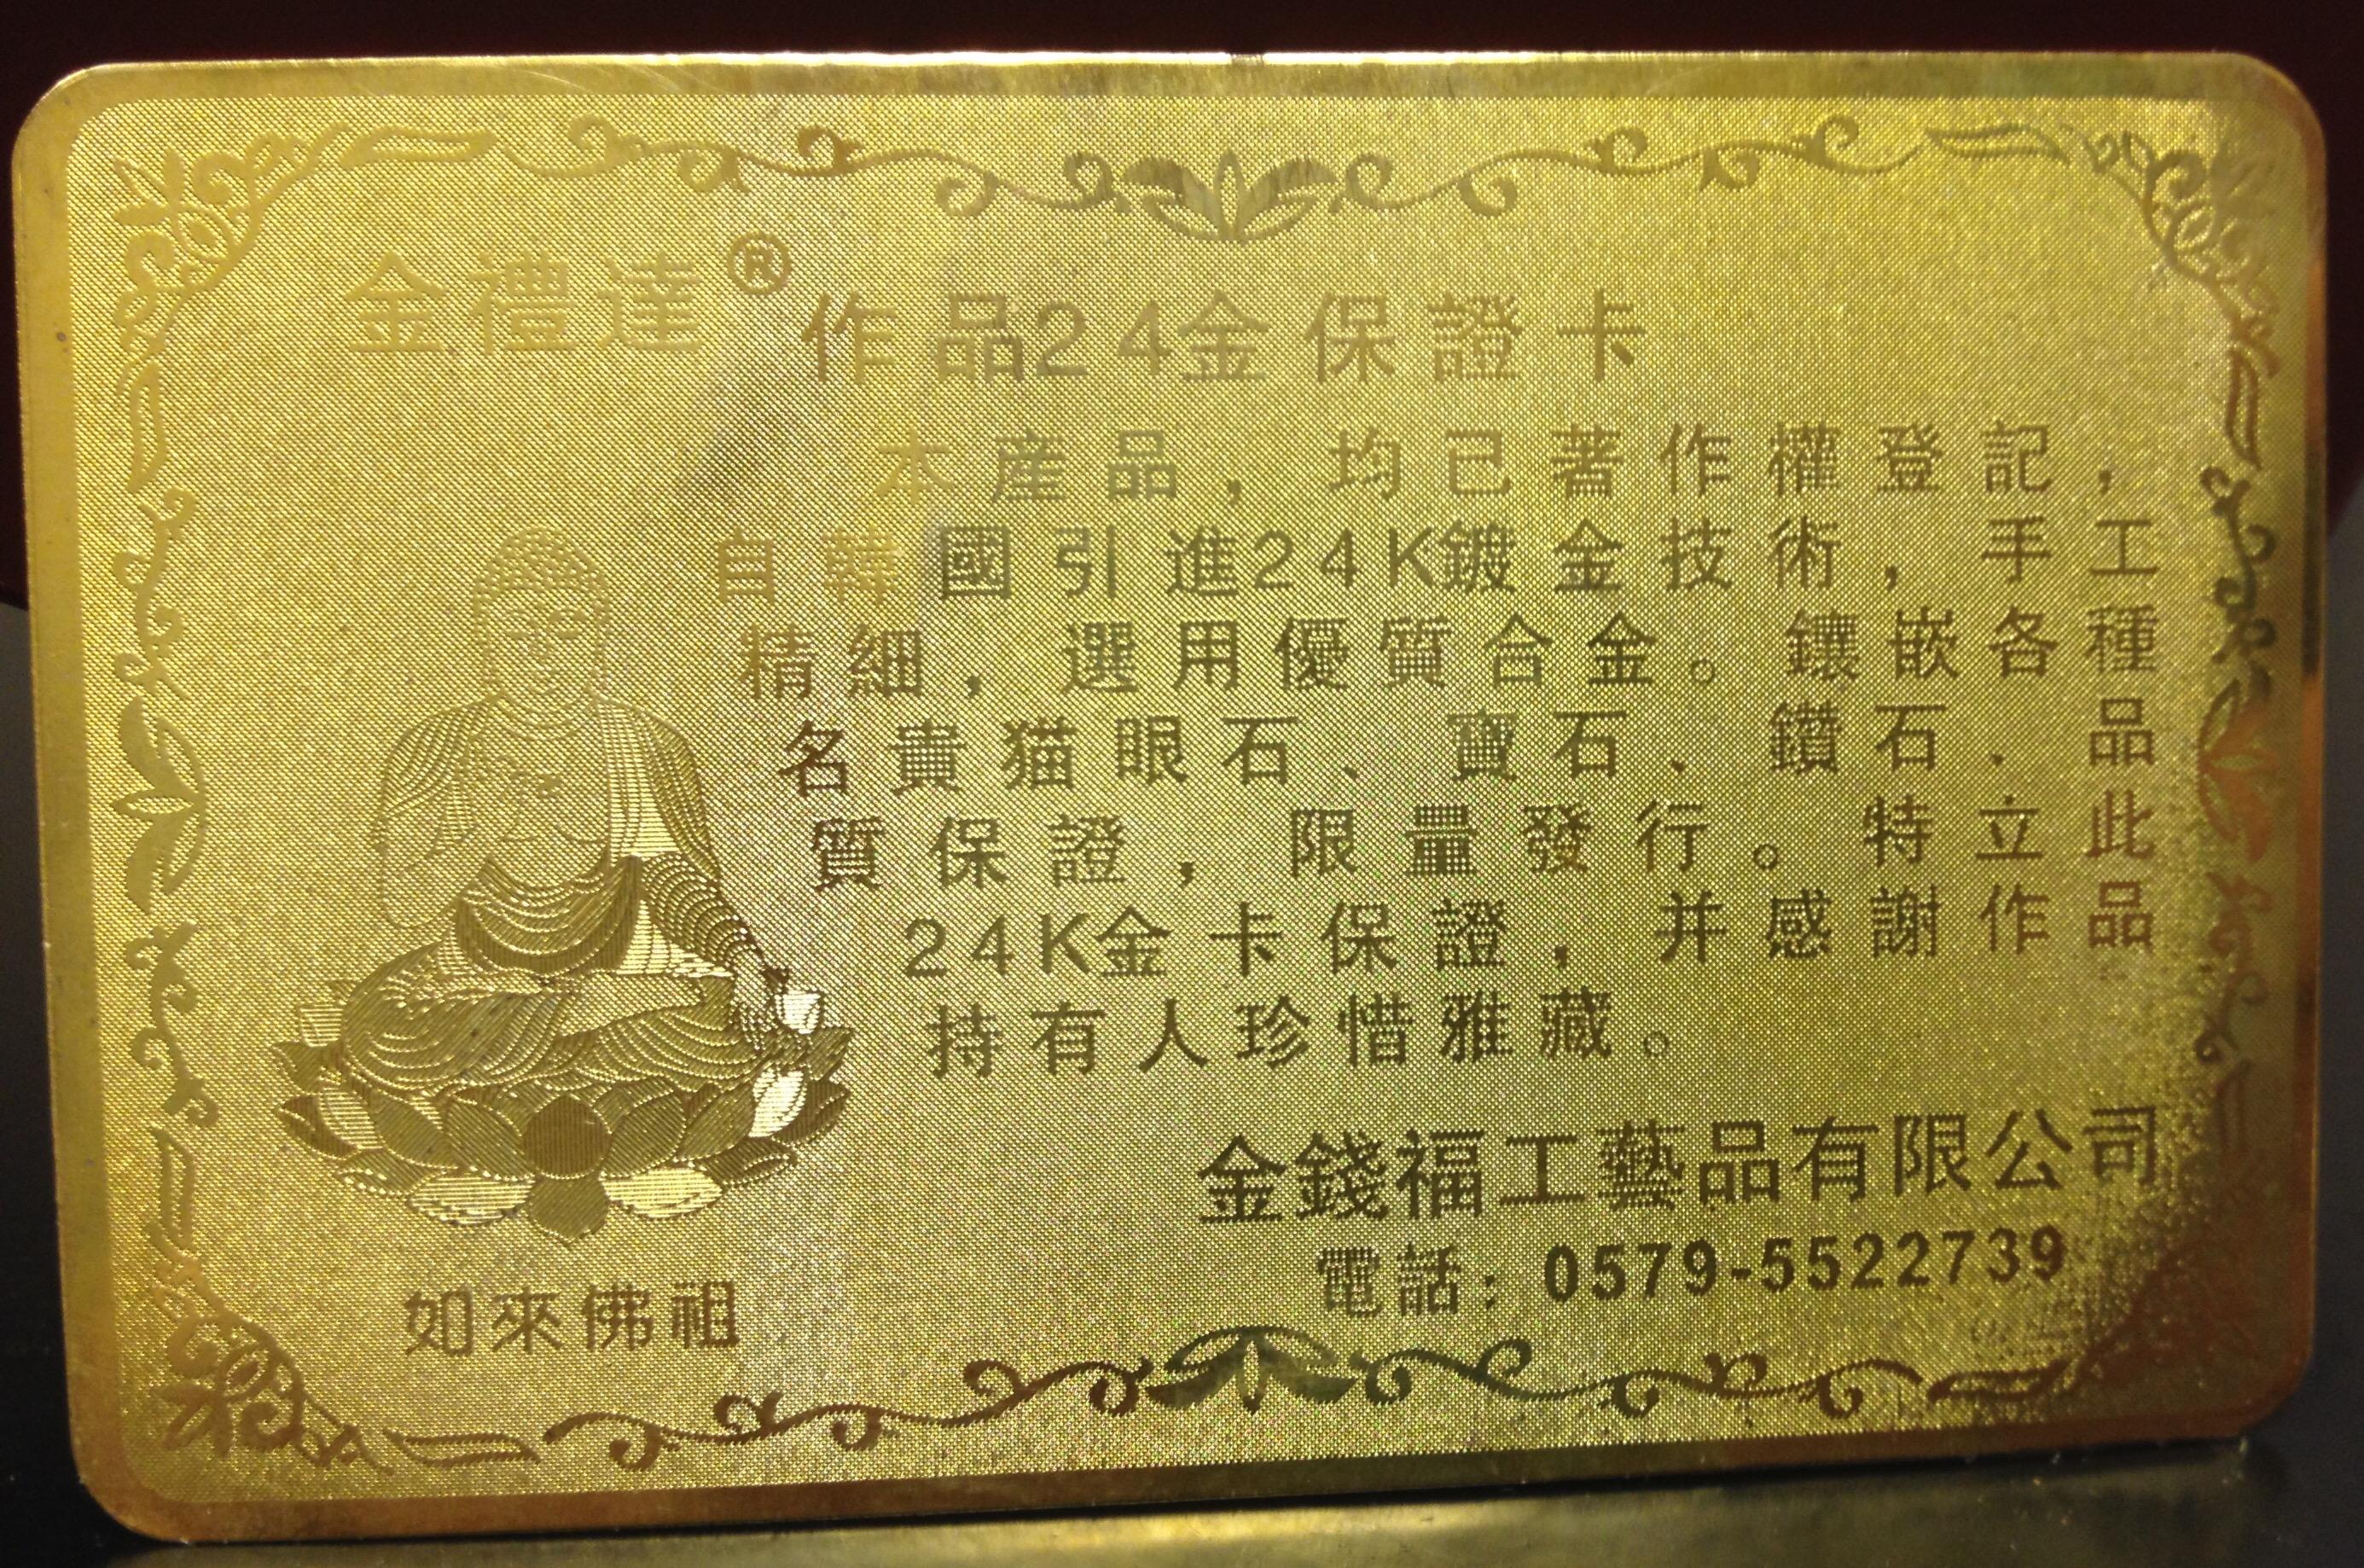 金禮達® 作品24金保證卡
本産品，均已著作權登記，
自韓國引進24K鍍金技術，手工
精細，選用優質合金。鑲嵌各種
名貴猫眼石、寶石、鑽石、品
質保證，限量發行。特立此
24K金卡保證，并感謝作品
持有人珍惜雅藏。
金錢福工藝品有限公司
電話：0579-5522739
如來佛祖